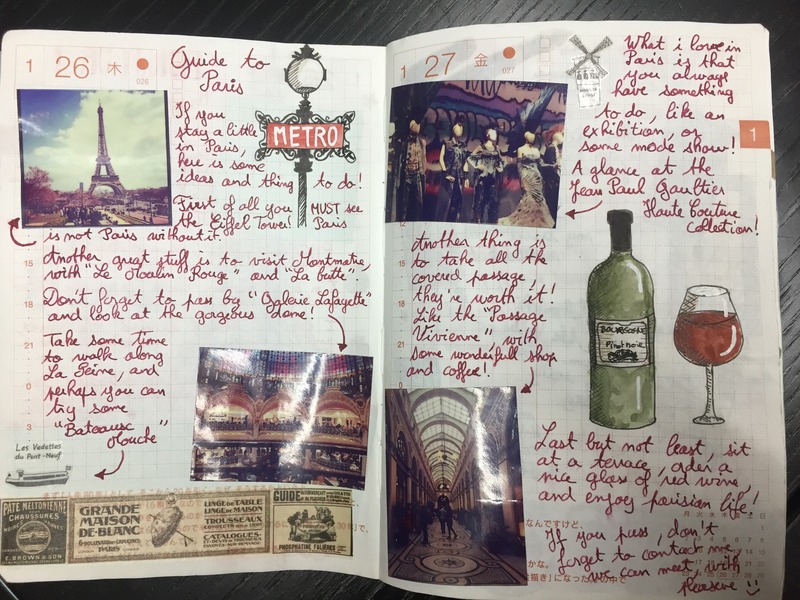 1
26
木
026
Guide to
Paris
If you
stay a little
in Paris,
here is some
ideas and thing to do!
METRO
First of all you MUST see
the Eiffel Tower! Paris
is not Paris without it.
Another great stuff is to visit Montmatre,
with "Le Moulin Rouge" and "La butte".
Don't forget to pass by "Galerie Lafayette"
and look at the gageous dome!
Take some time
to walk along
La Seine, and
perhaps you can
try some
"Bateausc
Mouche"
Les Vedettes
du Pont-Neuf
15
18
21
0
3
PATE MELTONIENNE
CHAUSSURES
E. BROWN & SON
GRANDE
MAISON
DE BLANC
PARIS
LINGE DE TABLE
LINGE DE MAISON
TROUSSEAUX
CATALOGUES
GUIDE
PHOSPHATINE FALIÈRES
1
27
金
027
What i love in
Paris is that
you always
have something
to do, like an
exhibition, or
some mode show!
A glance at the
Jean Paul Gaultier
Haute Couture
Collection!
1
Another thing is
to take all the
covered passage,
they're worth it!
Like the "Passage
Vivienne", with
some wonderfull shop
and coffee!
12
15
18
21
0
BOURGOGNE
Pinot noir
Last but not least, sit
at a terrace, oder a
nice glass of red wine,
and enjoy parisian life!
If you pass, don't
forget to contact me
we can meet, with
pleasure :)
なんですけど、